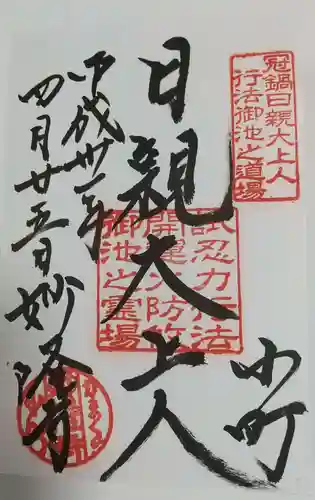 冠鍋日親大上人
行法御池之道場
小町
日親大上人
試忍力行法
御池之霊場
平成卅一年
四月廿五日 妙隆寺